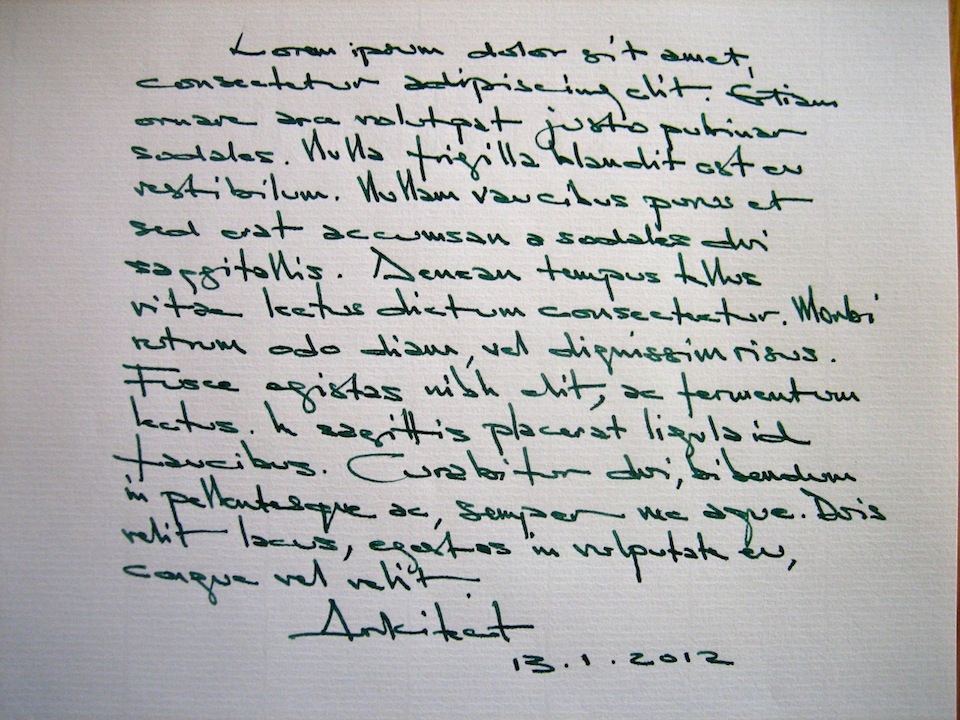 Lorem ipsum dolor sit amet,
consectetur adipiscing elit. Etiam
ornare arcu volutpat justo pulvinar
sodales. Nulla fringilla blandit est eu
vestibilum. Nullam vaucibus purus et
sed erat accumsan a sodales dui
saggitallis. Aenean tempus tellus
vitae lectus dictum consectuetur. Morbi
rutrum odo diam, vel dignissim risus.
Fusce egistas nibh elit, ac fermentum
lectus. In sagittis placerat ligula id
faucibus. Curabitur dui, bibendum
in pellentesque ac, semper nec ague. Duis
velit lacus, egestas in vulputate eu,
congue vel velit.
Arkitect
13.1.2012